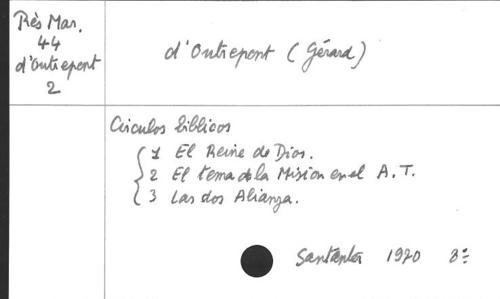 Rès Mar.
44
d'Outrepont
2
d'Outrepont (Gérard)
Circulos biblicos
1 El Reine de Dios.
2 El tema de la Mision en el A.T.
3 Las dos Alianza.
Santander 1970 8º